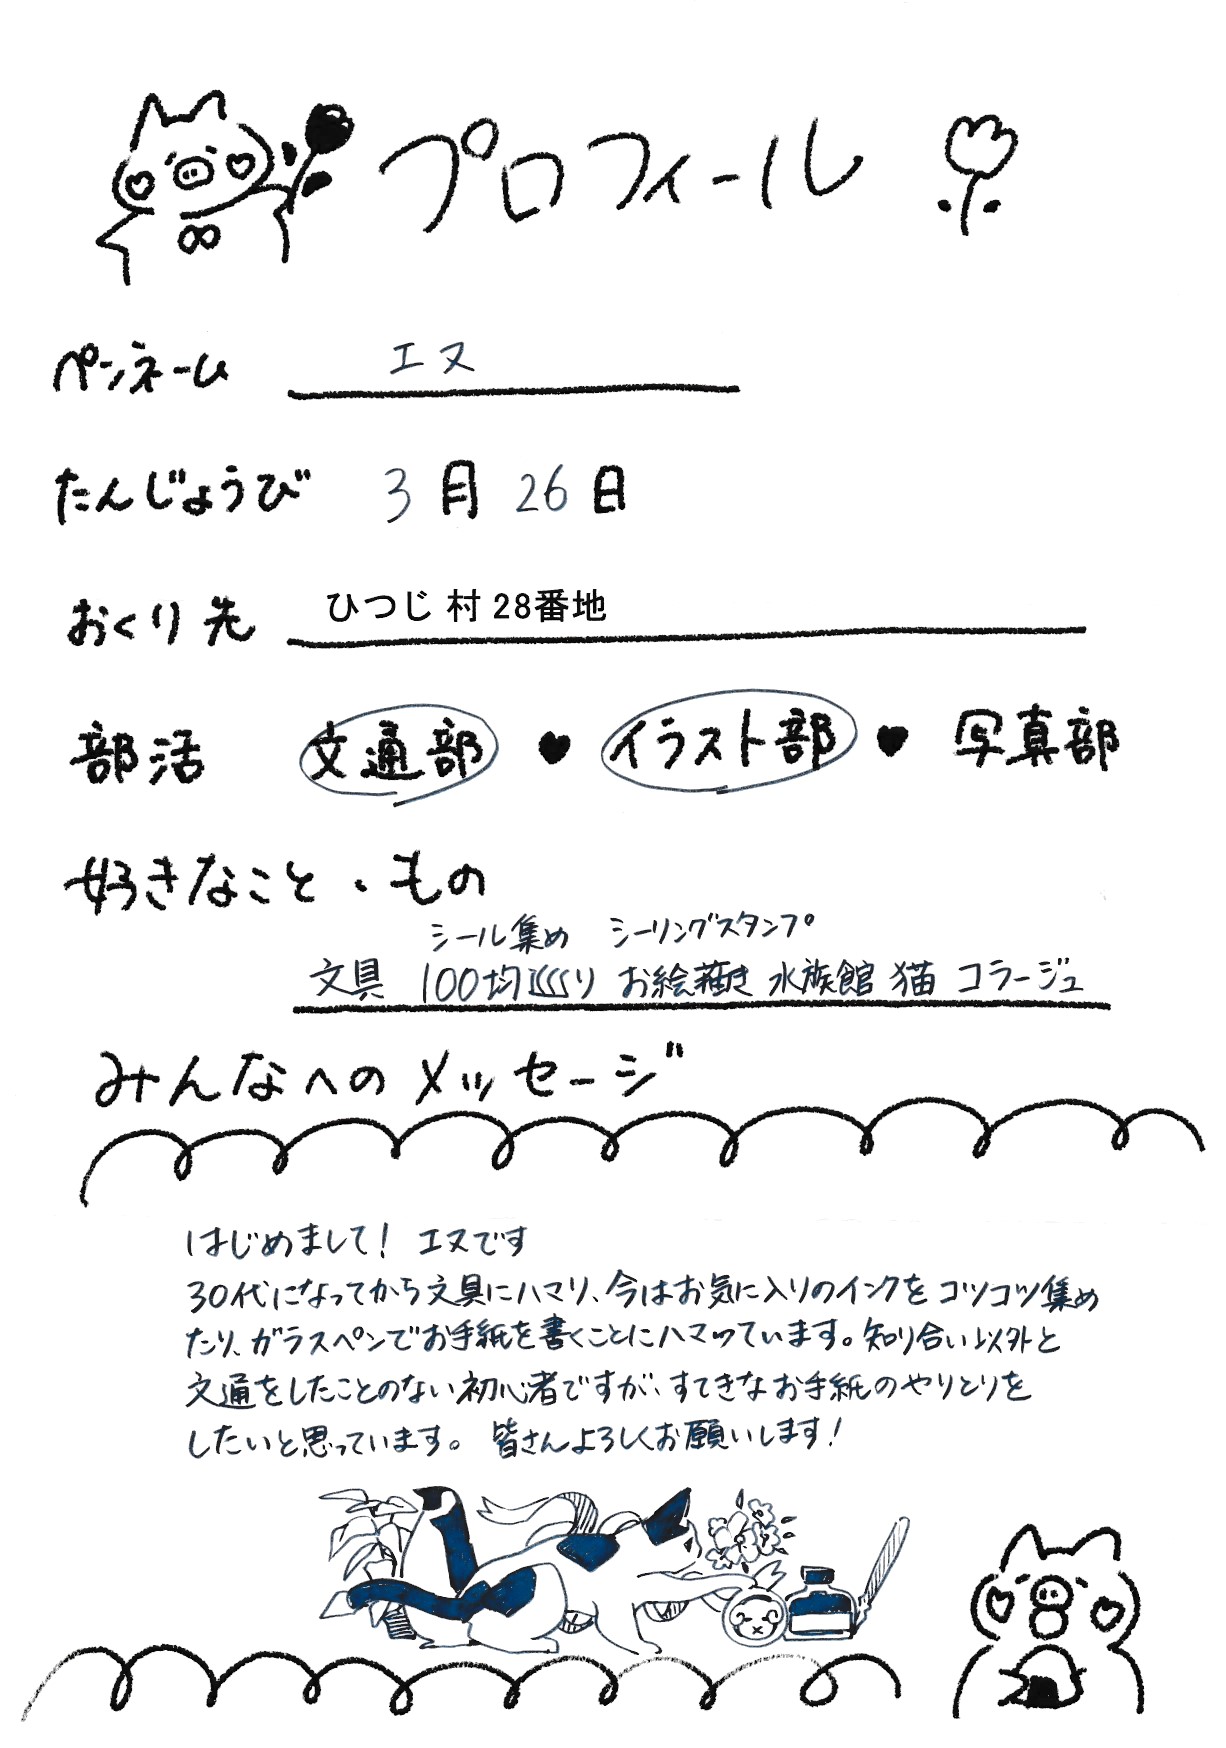 プロフィール
ペンネーム エヌ
たんじょうび 3月26日
おくり先 ひつじ村28番地
部活 文通部 ♥ イラスト部 ♥ 写真部
好きなこと・もの
シール集め シーリングスタンプ
文具 100均巡り お絵描き 水族館 猫 コラージュ
みんなへのメッセージ
はじめまして! エヌです
30代になってから文具にハマり、今はお気に入りのインクをコツコツ集め
たり、ガラスペンでお手紙を書くことにハマっています。知り合い以外と
文通をしたことのない初心者ですが、すてきなお手紙のやりとりを
したいと思っています。 皆さんよろしくお願いします!